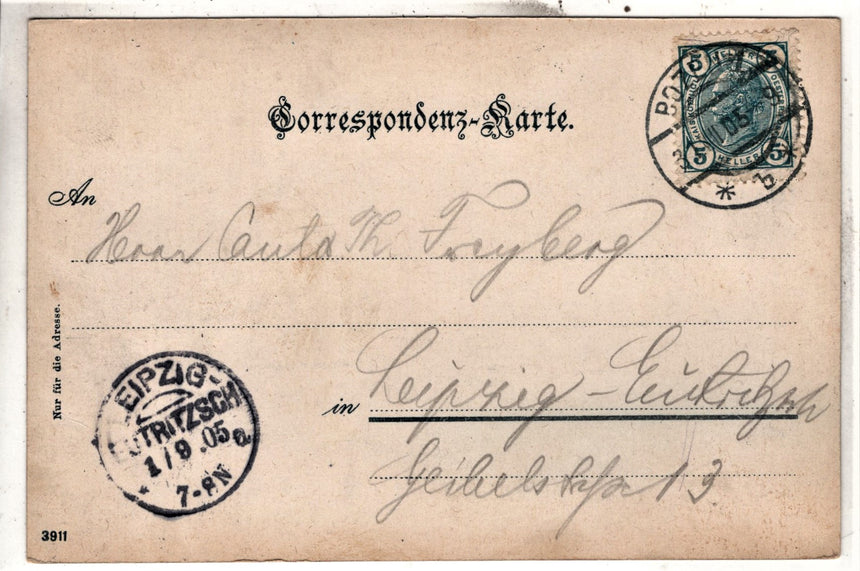 Correspondenz-Karte.
5 HELLER 5
5 HELLER 5
BOZ
05
* b
An
Herrn Th. Freyberg
in Leipzig-Eutritzsch
Geibelstraße 13
Nur für die Adresse.
LEIPZIG-
EUTRITZSCH
1/9.05
* 7-8N
3911